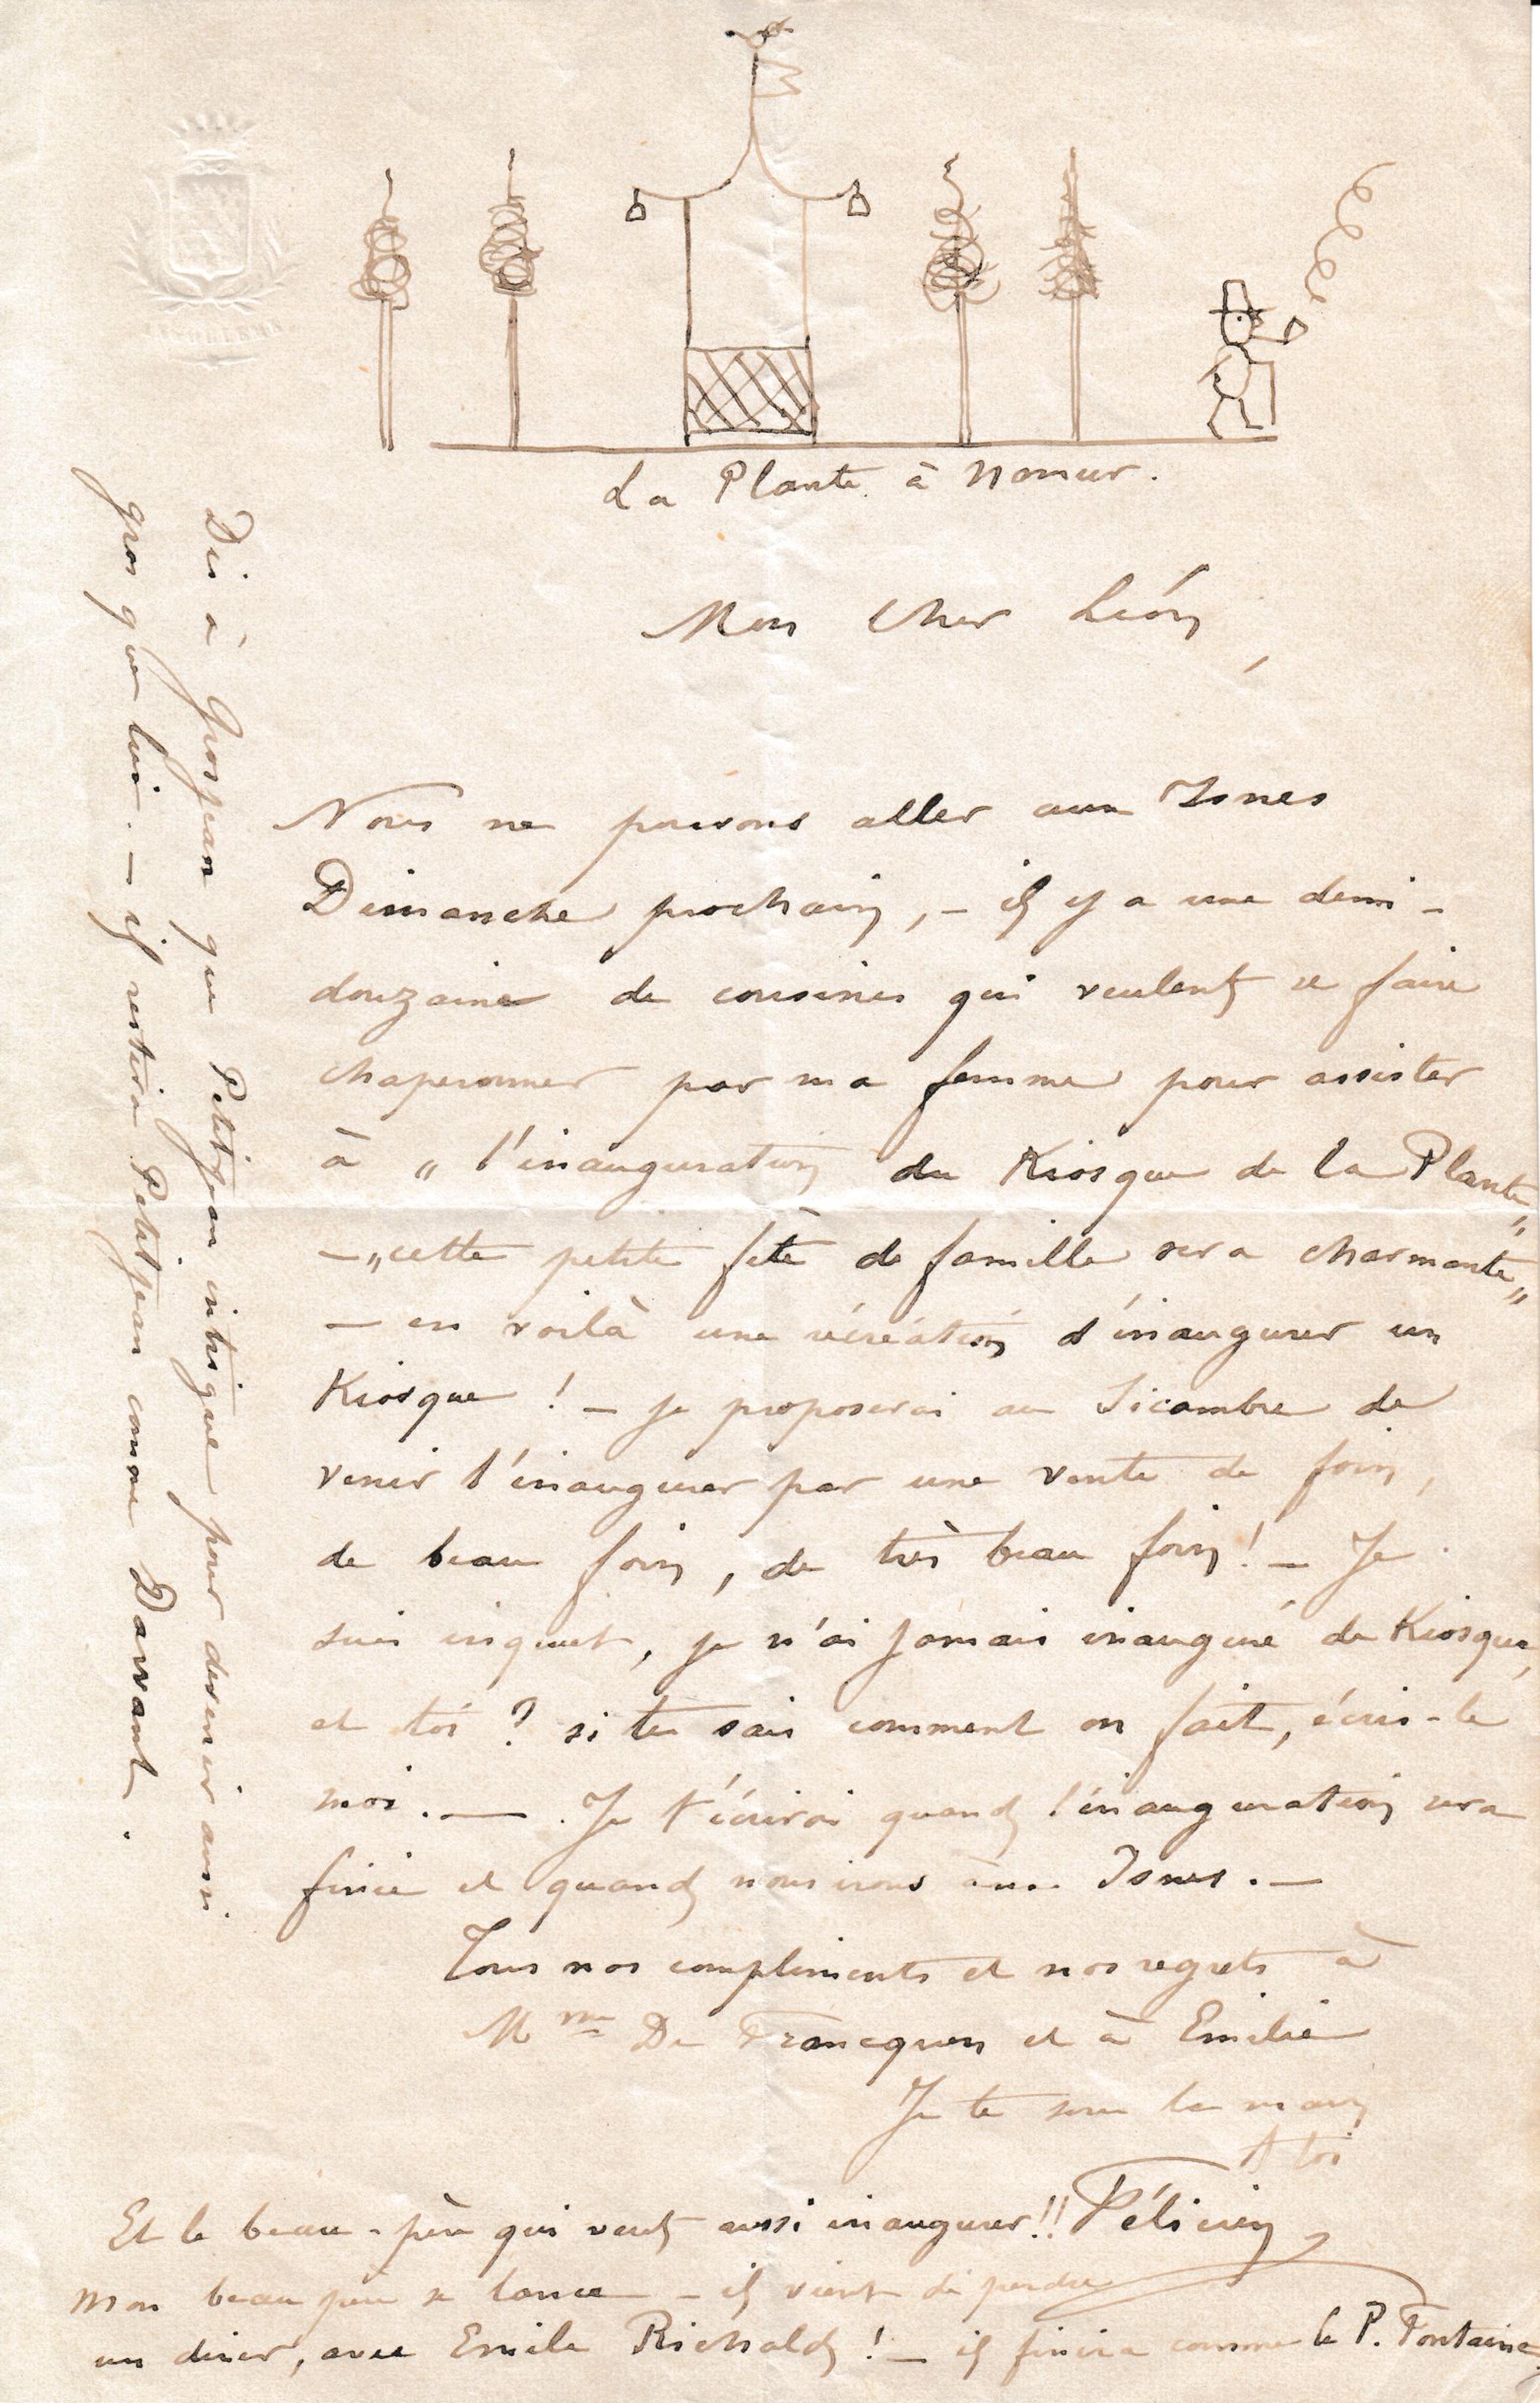 La Plante à Namur.
Mon Cher Léon,
Nous ne pouvons aller aux Isnes
Dimanche prochain, – il y a une demi-
douzaine de cousines qui veulent se faire
chaperonner par ma femme pour assister
à „ l'inauguration du Kiosque de la Plante „
– „ cette petite fête de famille sera charmante „
– en voilà une récréation d'inaugurer un
Kiosque ! – je proposerai au Sicambre de
venir l'inaugurer par une vente de foin,
de beau foin, de très beau foin ! – Je
suis inquiet, je n'ai jamais inauguré de Kiosque,
et toi ? si tu sais comment on fait, écris-le
moi. — Je t'écrirai quand l'inauguration sera
finie et quand nous irons aux Isnes. —
Tous nos compliments et nos regrets à
Mme De Francquen et à Emilie
Je te serre la main
A toi
Félicien
Et le beau-père qui veut aussi inaugurer !!
Mon beau père se lance – il vient de perdre
un diner, avec Emile Richald ! – il finira comme le P. Fontaine
Dis à Grosjean que Petitjean intrigue pour devenir aussi
gros que lui. – il restera Petitjean comme Davant.